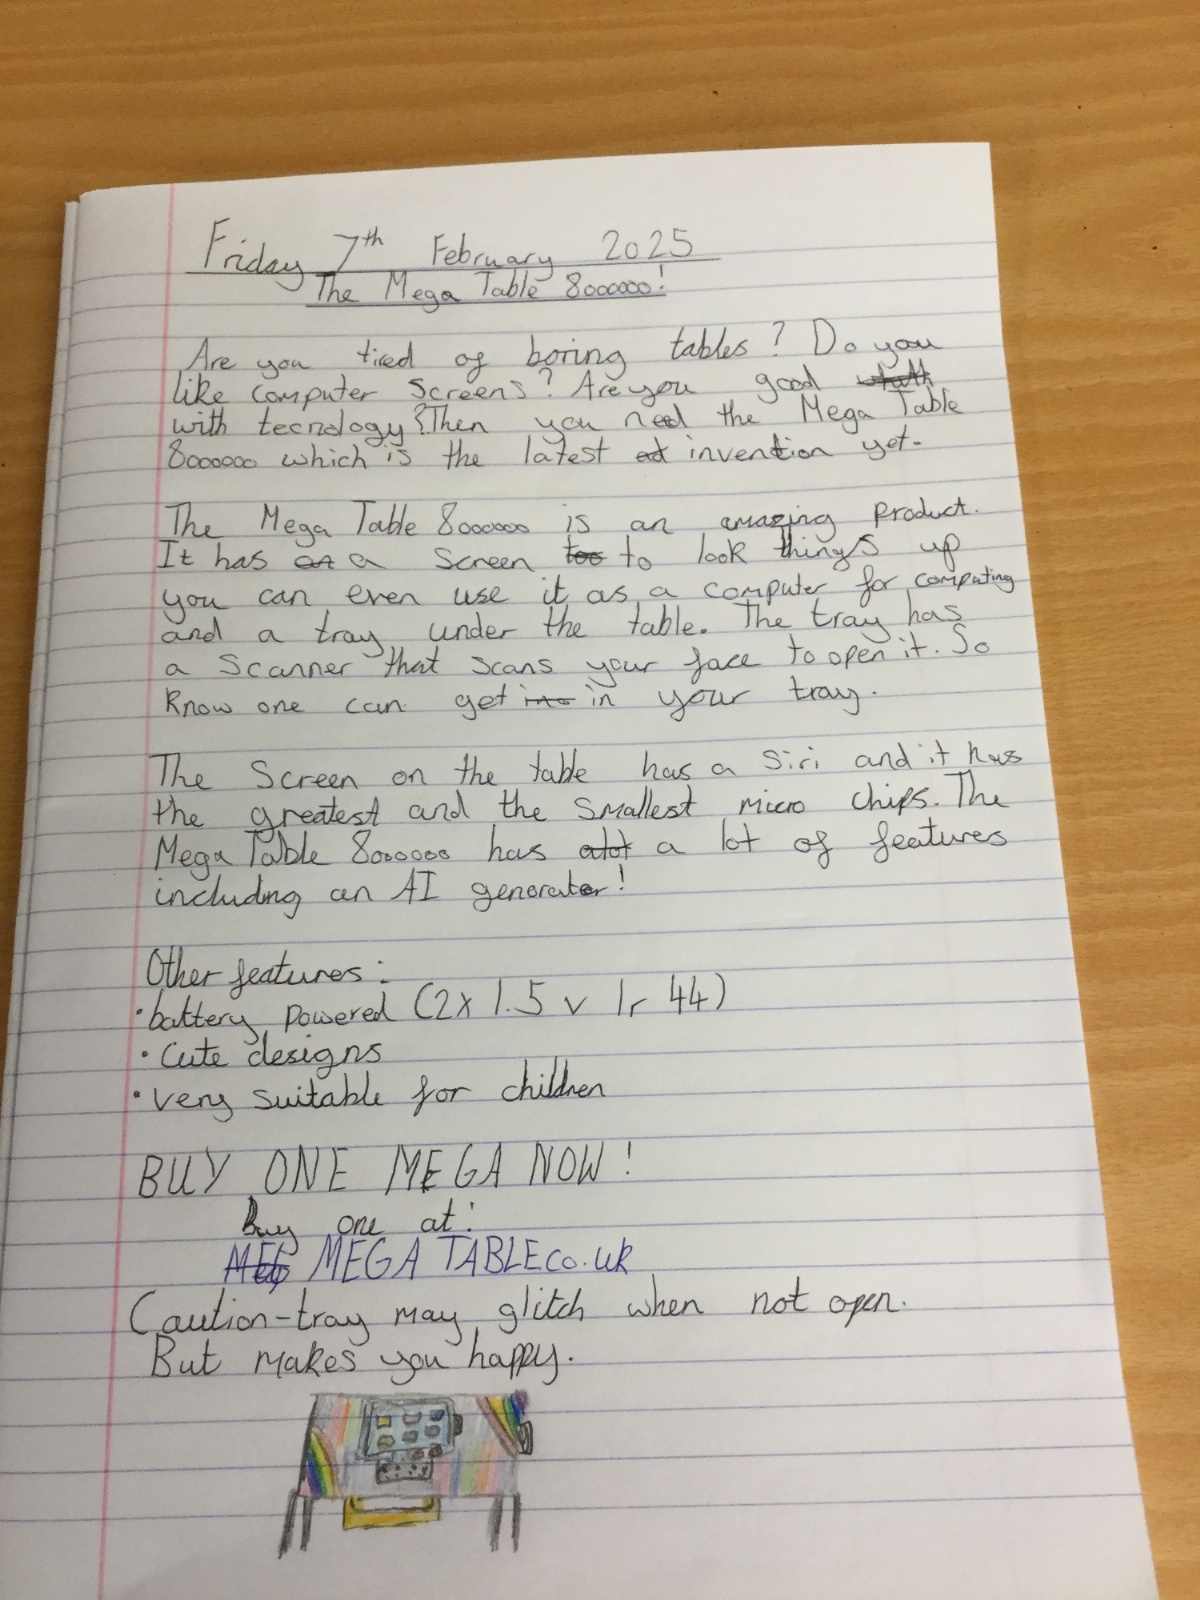 Friday 7th February 2025
The Mega Table 8000000!
Are you tired of boring tables? Do you
like computer screens? Are you good
with tecnology? Then you need the Mega Table
8000000 which is the latest invention yet.
The Mega Table 8000000 is an amazing product.
It has a screen to look things up
you can even use it as a computer for computing
and a tray under the table. The tray has
a scanner that scans your face to open it. So
know one can get in your tray.
The screen on the table has a Siri and it has
the greatest and the smallest micro chips. The
Mega Table 8000000 has a lot of features
including an AI generator!
Other features:
• battery powered (2x 1.5 v lr 44)
• Cute designs
• very suitable for children
BUY ONE MEGA NOW!
Buy one at:
MEGA TABLEco.uk
Caution-tray may glitch when not open.
But makes you happy.